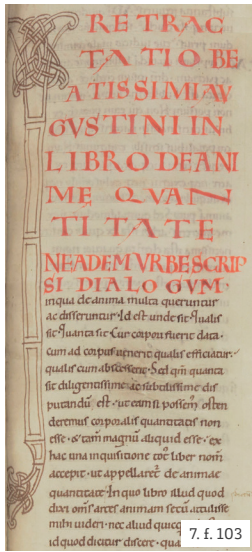 RETRAC
TATIO BE
ATISSIMI AV
GVSTINI IN
LIBRO DE ANI
MĘ QVAN
TITATE
N EADEM VRBE SCRIP
SI DIALOGVM.
inquo de anima multa queruntur
ac disseruntur. Id est unde sit. qualis
sit. quanta sit. Cur corpori fuerit data.
cum ad corpus uenerit qualis efficiatur.
qualis cum abscesserit. Sed qm̄ quanta
sit diligentissime ac subtilissime dis
putandū est. ut eam si possem̄ osten
deremus corporalis quantitatis non
esse. & tam̄ magnū aliquid esse. ex
hac una inquisitione tot liber nom̄
accepit. ut appellaret̄ de animae
quantitate. In quo libro illud quod
dixi om̄s artes animam secū attulisse
mihi uideri. nec aliud quicquam esse
id quod dicitur discere. qua
7. f. 103